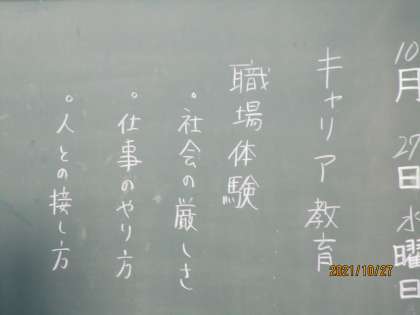 10月27日水曜日
キャリア教育
職場体験
。社会の厳しさ
。仕事のやり方
。人との接し方
2021/10/27